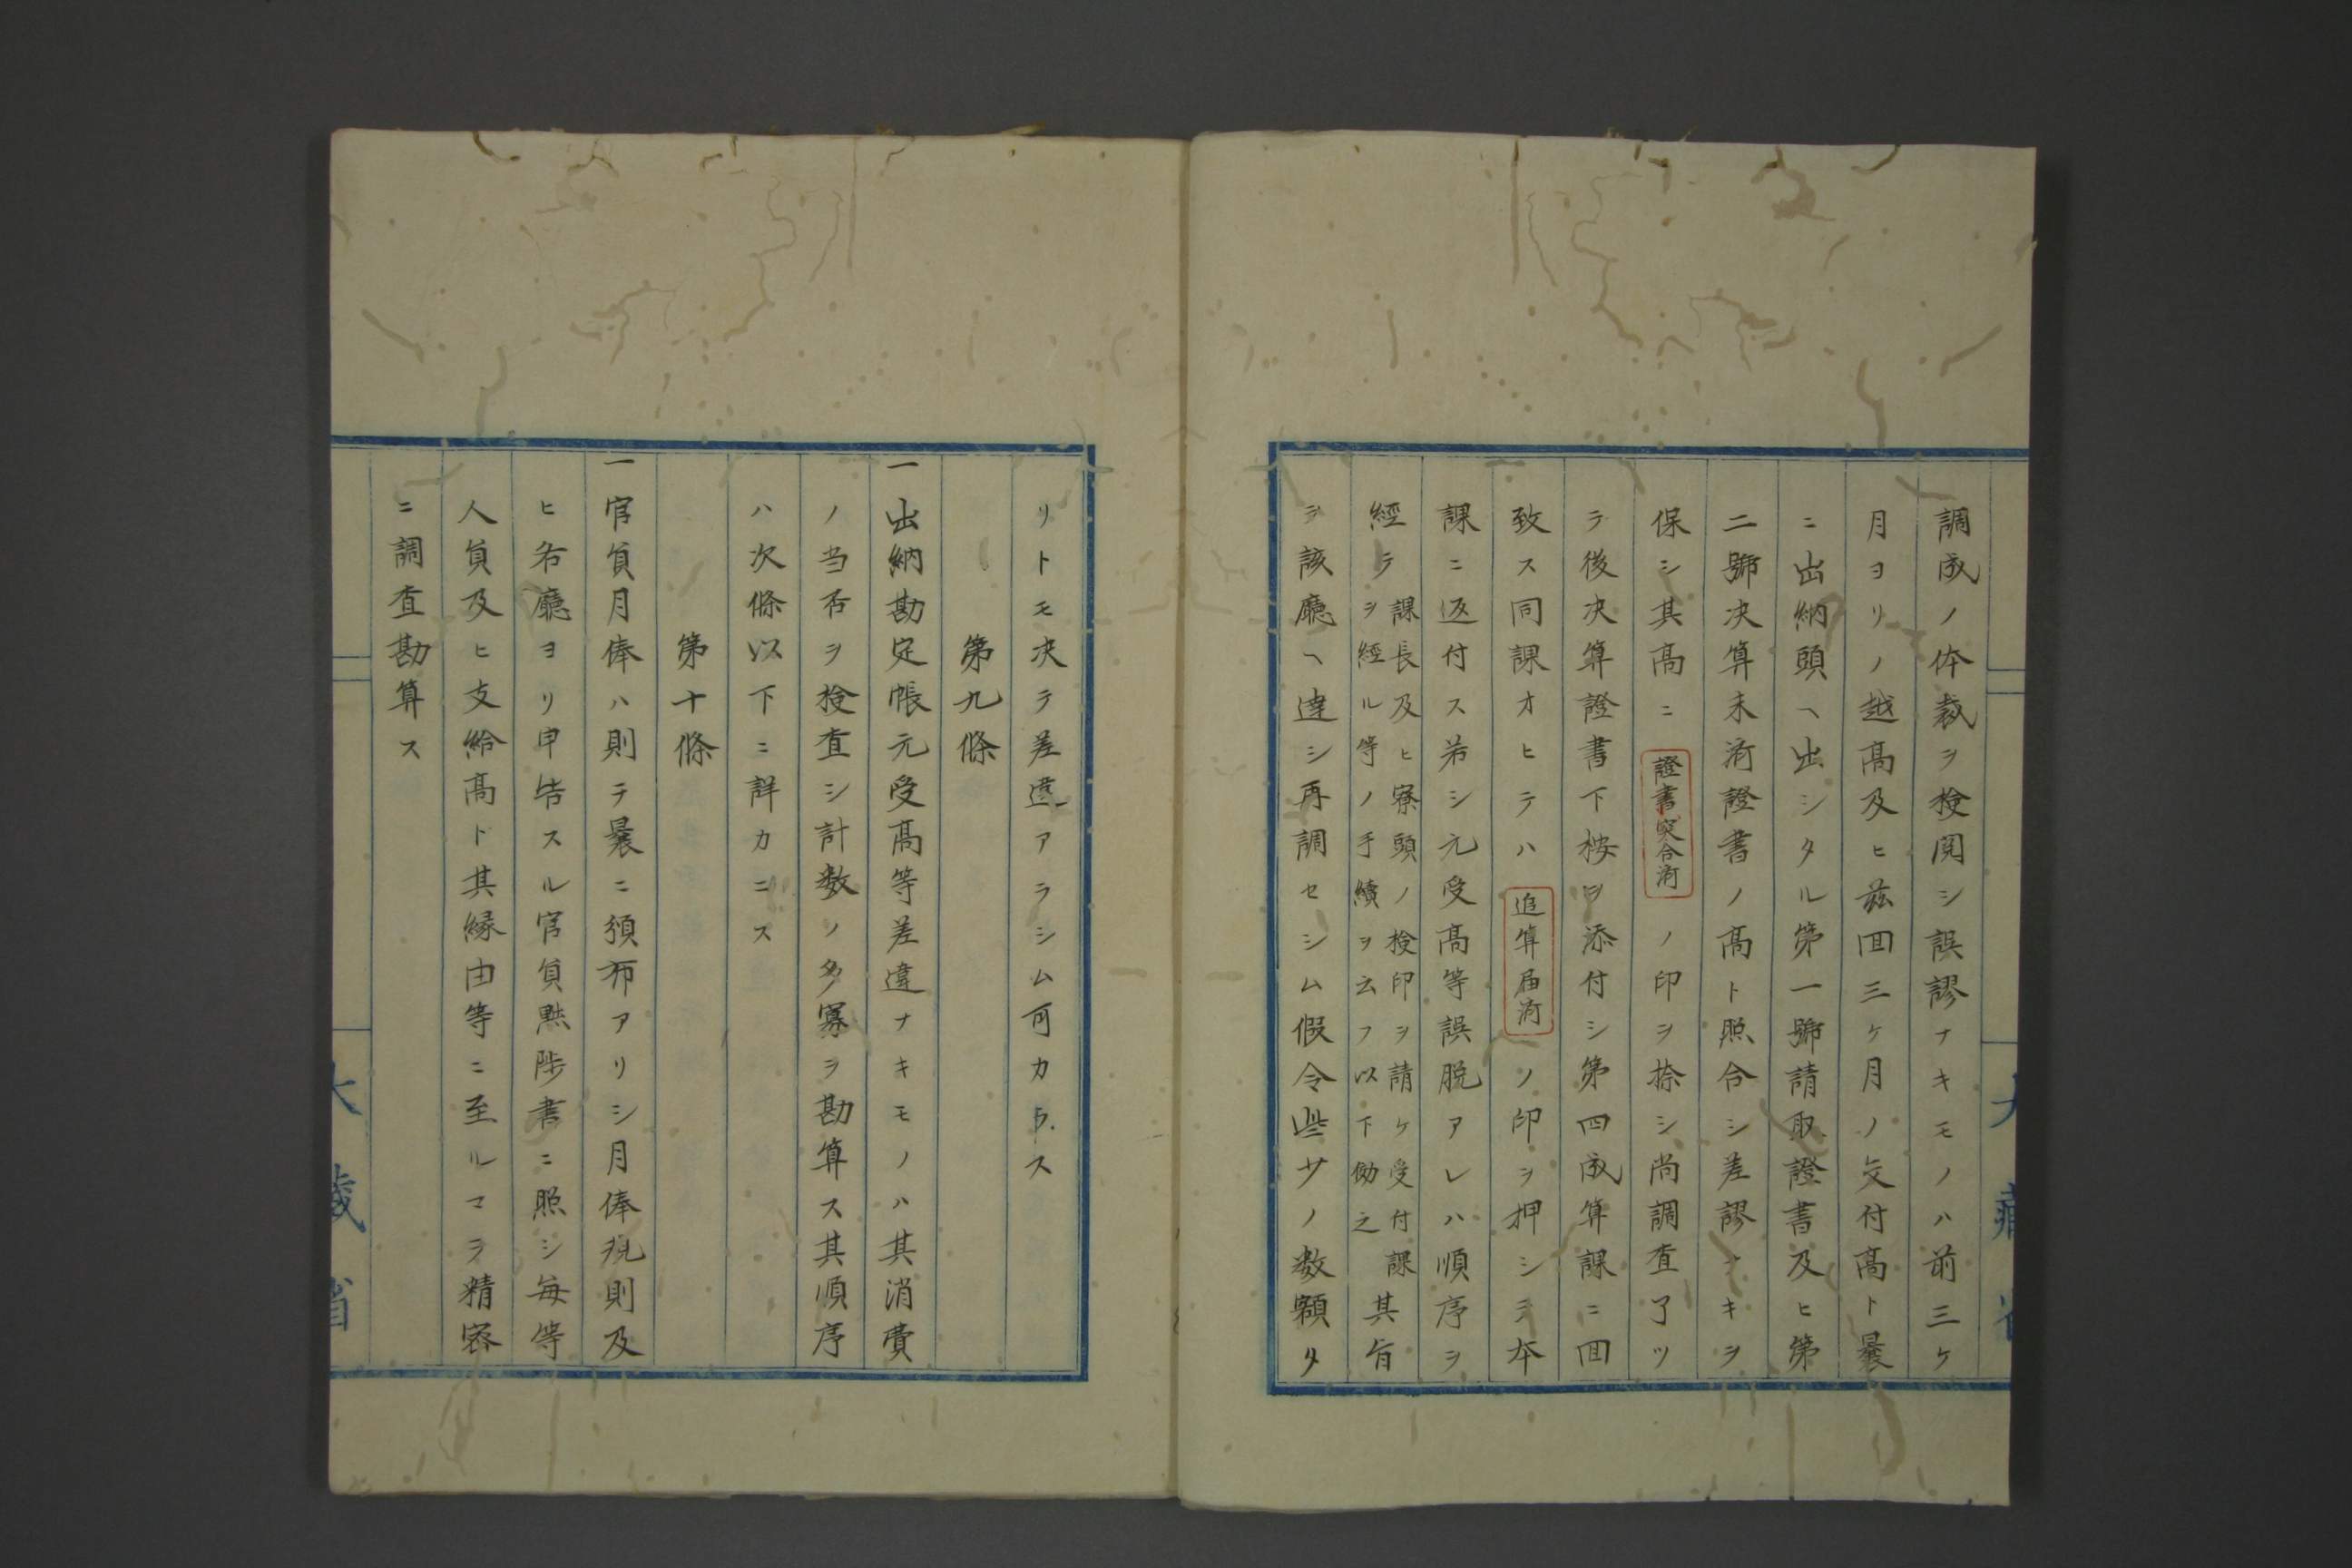 調成ノ体裁ヲ検閲シ誤謬ナキモノハ前三ケ
月ヨリノ越高及ヒ茲回三ケ月ノ交付高ト曩
ニ出納頭ヘ出シタル第一號請取證書及ヒ第
二號决算未済證書ノ高ト照合シ差謬ナキヲ
保シ其高ニ證書突合済ノ印ヲ捺シ尚調査了ツ
テ後决算證書下桉ヲ添付シ第四成算課ニ回
致ス同課オヒテハ追算届済ノ印ヲ押シテ本
課ニ返付ス若シ元受高等誤脱アレハ順序ヲ
經テ課長及ヒ寮頭ノ検印ヲ請ケ受付課ヲ經ル等ノ手續ヲ云フ以下倣之其旨
ヲ該廳ヘ達シ再調セシム假令些少ノ数額タ
リトモ决テ差違アラシム可カラス
第九條
一出納勘定帳元受高等差違ナキモノハ其消費
ノ当否ヲ検査シ計数ノ多寡ヲ勘算ス其順序
ハ次條以下ニ詳カニス
第十條
一官負月俸ハ則テ曩ニ頒布アリシ月俸規則及
ヒ各廳ヨリ申告スル官負黜陟書ニ照シ毎等
人負及ヒ支給高ト其縁由等ニ至ルマテ精密
ニ調査勘算ス
大藏省
大藏省